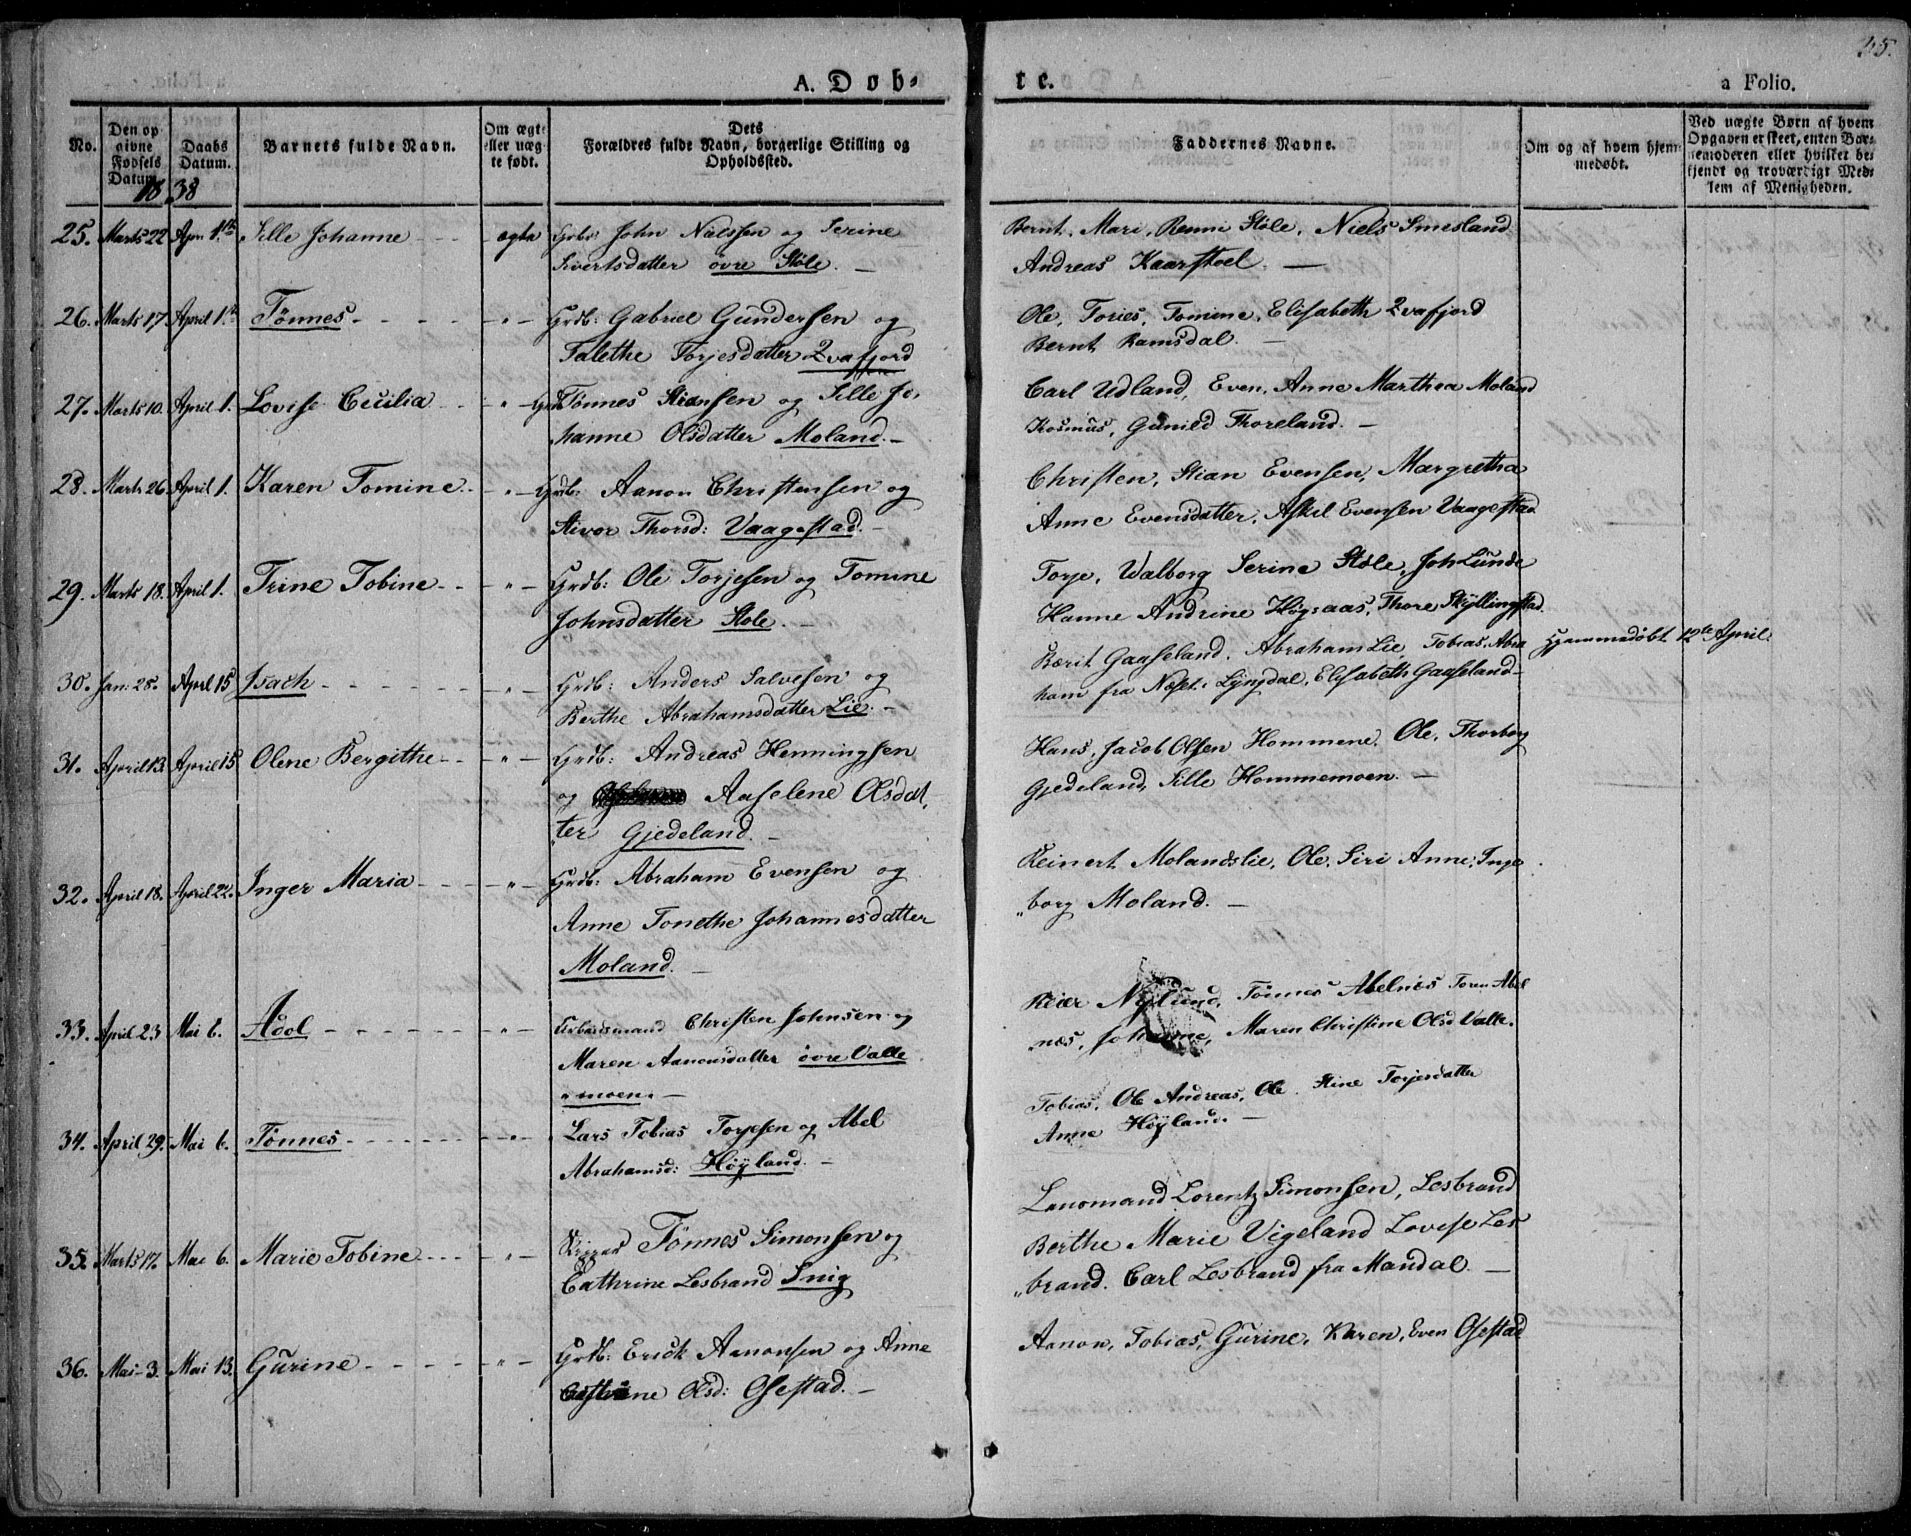 25.
A. Døb-
te.
a Folio.
No.
Den opgivne Fødsels Datum.
Daabs Datum.
Barnets fulde Navn.
Om ægte eller uægte født.
Dets Forældres fulde Navn, borgerlige Stilling og Opholdssted.
Faddernes Navne.
Om og af hvem hjemmedøbt.
Ved uægte Børn af hvem Opgaven er skeet, enten Barnemoderen eller hvilket bekjendt og troværdigt Medlem af Menigheden.
1838
25. Marts 22 April 1ste Sille Johanne - - - ægte Grdb: John Nielsen og Serine
Sivertsdatter øvre Støle. -
Bernt, Mari, Renni Støle, Niels Smesland
Andreas Kaarstoel. -
26. Marts 17 April 1ste Tønnes - - - - " - Grdb: Gabriel Gundersen og
Talethe Torjesdatter Qvafjord
Ole, Tories, Tomine, Elisabeth Qvafjord
Bernt Ramsdal. -
27. Marts 10. April 1. Lovise Cecilia - - " - Grdb: Tønnes Stiansen og Sille Jo-
hanne Olsdatter Moland. -
Carl Udland, Even, Anne Marthea Moland
Rasmus, Gunild Thoreland. -
28. Marts 26 April 1. Karen Tomine - - " - Grdb: Aanon Christensen og
Sivor Thorsd: Vaagestad. -
Christen, Stian Evensen, Margretha
Anne Evensdatter, Askil Evensen Vaagestad.
29. Marts 18. April 1. Trine Tobine - - " - Grdb: Ole Torjesen og Tomine
Johnsdatter Støle. -
Torje, Walborg Serine Støle, Joh Lunde
Hanne Andrine Høgsaas, Thore Skyllingstad.
30. Jan: 28. April 15 Isach - - - - " - Grdb: Anders Salvesen og
Berthe Abrahamsdatter Lie. -
Berit Gaaseland, Abraham Lie, Tobias, Abra
ham fra Neset i Lyngdal, Elisabeth Gaaseland -
Hjemmedøbt 12te April.
31. April 13. April 15 Olene Bergithe - - " - Grdb: Andreas Henningsen
og Aaselene Olsdat,
"ter Gjedeland. -
Hans, Jacob Olsen Hommene, Ole, Thorborg
Gjedeland, Sille Hommemoen. -
32. April 18. April 22. Inger Maria - - - " - Grdb: Abraham Evensen og
Anne Tonethe Johannesdatter
Moland. -
Reinert Molandslie, Ole, Siri Anne, Inge
"borg Moland. -
33. April 23 Mai 6. Adol - - - - " - Arbeidsmand Christen Johnsen og
Maren Aanonsdatter øvre Valle
"moen. -
Reier Nylund, Tønnes Abelnes Toren Abel
nes, Johanne, Maren Christine Olsd Valle.
34. April 29. Mai 6. Tønnes - - - - " - Lars Tobias Torjesen og Abel
Abrahamsd: Høyland. -
Tobias, Ole Andreas, Ole, Stine Torjesdatter
Anne Høyland. -
35. Marts 17. Mai 6. Marie Tobine - - " - Skipper Tønnes Simonsen og
Cathrine Lesbrand Snig
Lensmand Lorentz Simonsen, Lesbrand
Berthe Marie Vigeland Lovise Les
"brand. Carl Lesbrand fra Mandal. -
36. Mai 3. Mai 13. Gurine - - - - " - Grdb: Erick Aanonsen og Anne
Cathrine Olsd: Osestad. -
Aanon, Tobias, Gurine, Karen, Even Osestad